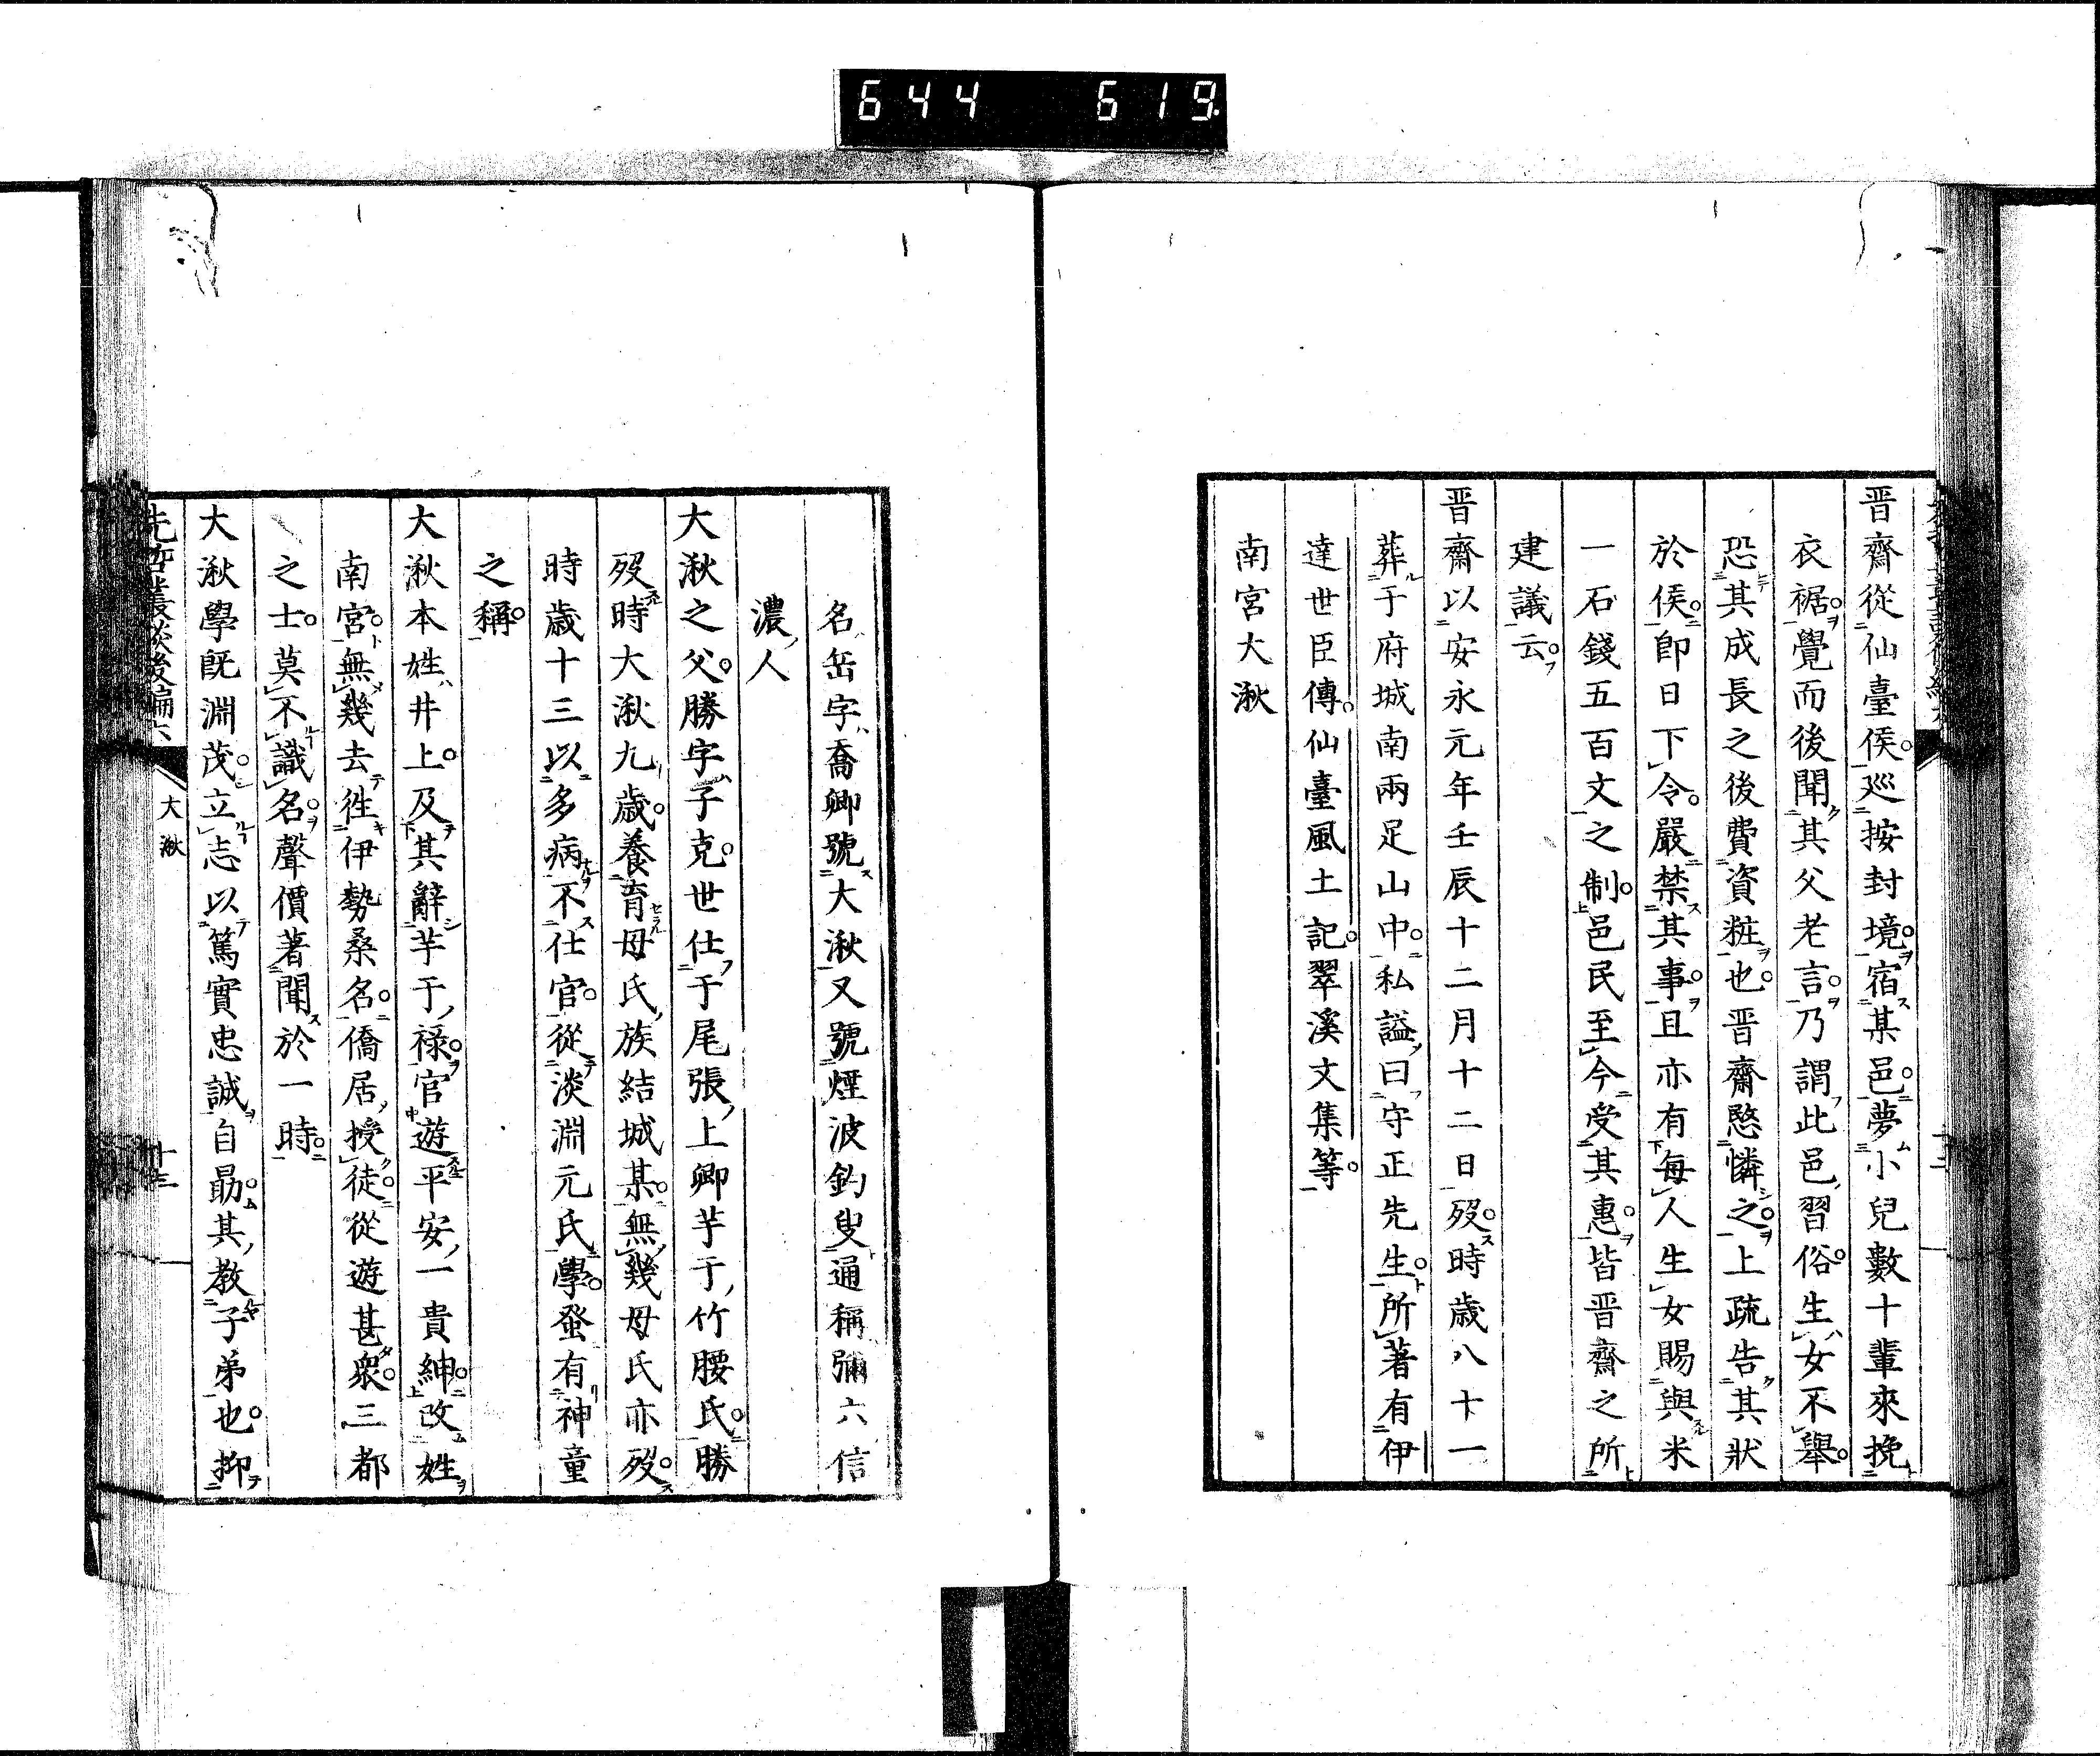 644 619.
晋齋從仙臺侯。巡按封境。宿某邑。夢小兒數十輩來挽
衣裾。覺而後聞其父老言。乃謂此邑習俗。生女不舉。
恐其成長之後費資粧也。晋齋愍憐之。上疏告其狀
於侯。即日下令。嚴禁其事。且亦有每人生女賜與米
一石錢五百文之制。邑民至今受其惠。皆晋齋之所
建議云。
晋齋以安永元年壬辰十二月十二日歿。時歳八十一
葬于府城南兩足山中。私謚曰守正先生。所著有伊
達世臣傳。仙臺風土記。翠溪文集等。
南宮大湫
名岳字喬卿號大湫又號煙波釣叟通稱彌六信
濃人
大湫之父。勝字子克。世仕于尾張上卿芋于竹腰氏。勝
歿時大湫九歳。養育母氏族結城某。無幾母氏亦歿。
時歳十三以多病不仕官。從淡淵元氏學。蚤有神童
之稱。
大湫本姓井上。及其辭芋于祿。官遊平安一貴紳。改姓
南宮。無幾去徃伊勢桑名。僑居授徒。從遊甚衆。三都
之士。莫不識名。聲價著聞於一時。
大湫學既淵茂。立志以篤實忠誠自勗。其教子弟也。抑
先哲叢談後編六
大湫
十三